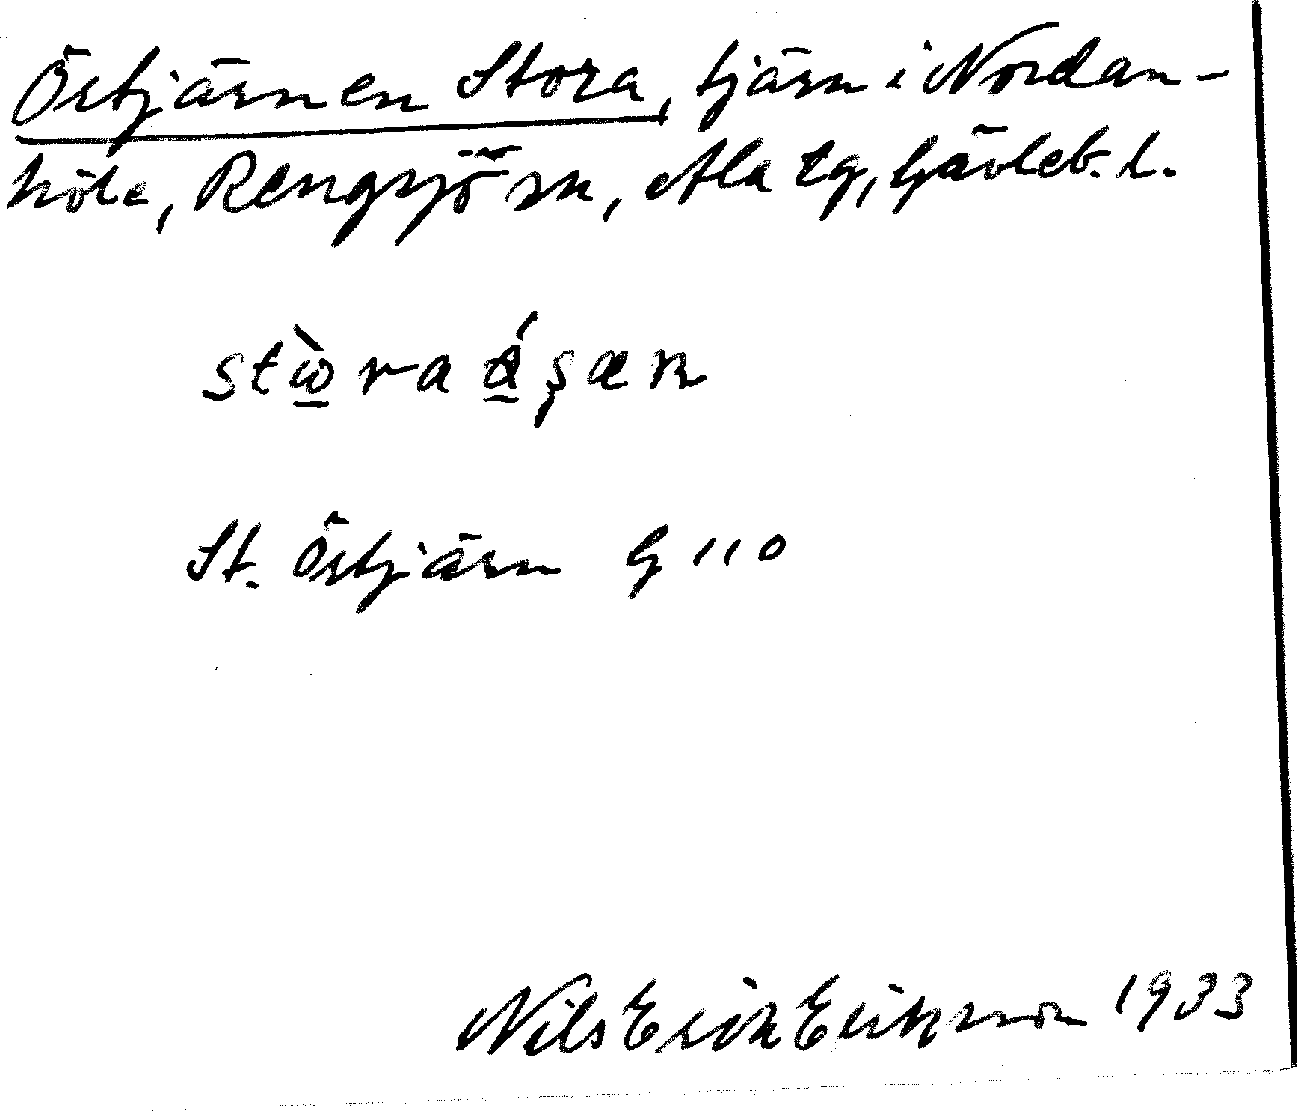 Östjärnen Stora, tjärn i Nordan-
höle, Rengsjö sn, Ala tg, Gävleb. l.
stὼra á̱şæn
St. Östjärn G 110
Nils Erik Eriksson 1933